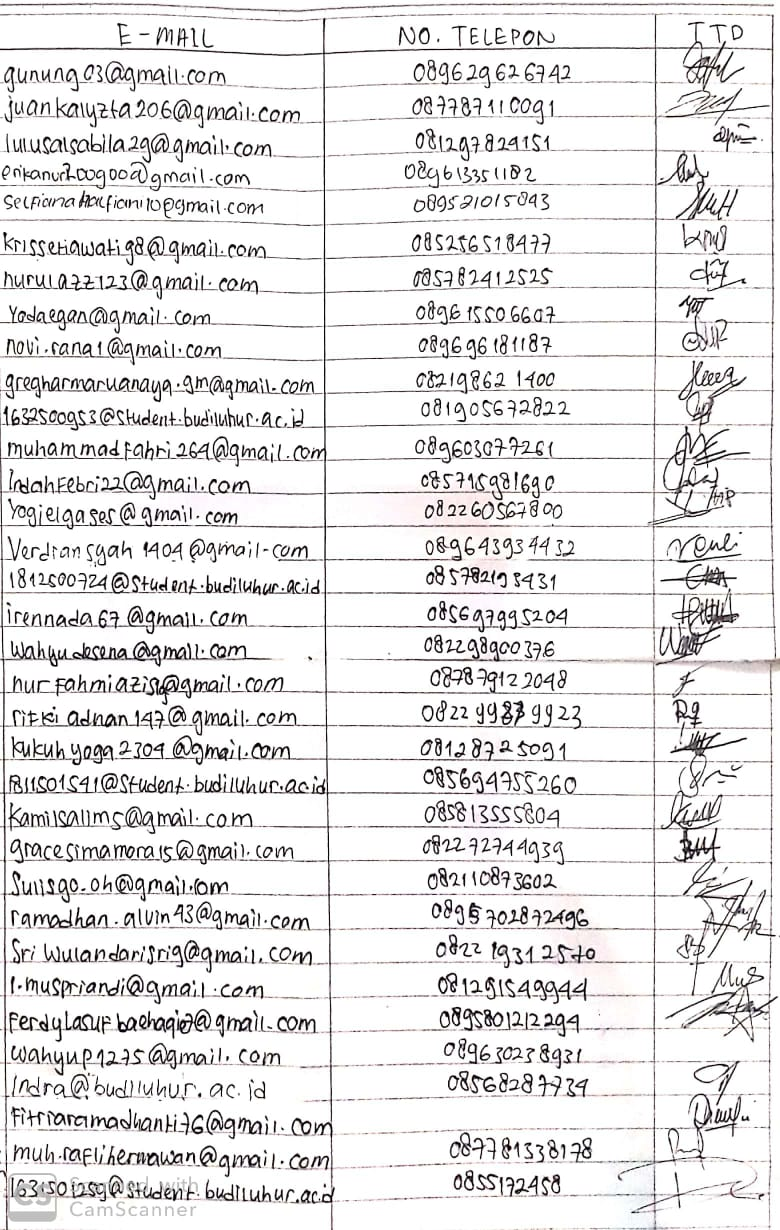 E-MAIL NO. TELEPON TTD
gunung03@gmail.com 089629626742
juankalyzta206@gmail.com 087787110091
lulusalsabila29@gmail.com 081297824151
erikanur200900@gmail.com 089613351182
selfianahalfiani10@gmail.com 089521015843
krissetiawati98@gmail.com 085256518477
nurulazz123@gmail.com 085782412525
Yodaegan@gmail.com 089615506607
novi.rana1@gmail.com 089696181187
gregharmaruanaya.gm@gmail.com 08219862 1400
1632500953@student.budiluhur.ac.id 081905672822
muhammadfahri264@gmail.com 089603077261
Indahfebri22@gmail.com 085715981690
Yogielgases@gmail.com 082260567800
Verdiansyah1404@gmail.com 089643934432
1812500724@student.budiluhur.ac.id 085782193431
irennada67@gmail.com 085697995204
wahyudesena@gmail.com 082298900376
nurfahmiazis9@gmail.com 087879122048
rifkiadnan147@gmail.com 0822998
9923
kukuhyoga2304@gmail.com 08128725091
1811501541@student.budiluhur.ac.id 085694755260
kamilsalim5@gmail.com 085813555804
gracesimamora15@gmail.com 082272744939
Sulisgo.oh@gmail.com 082110873602
ramadhan.alvin43@gmail.com 0895702872496
Sri Wulandarisri9@gmail.com 0822 19312570
l.muspriandi@gmail.com 081291549944
0895801212294
wahyup1275@gmail.com 089630238931
Indra@budiluhur.ac.id 08568287734
Fitriaramadhanti76@gmail.com
muh.raflihermawan@gmail.com 087781338178
1631501259@student.budiluhur.ac.id 0855172458
CS Scanned with
CamScanner